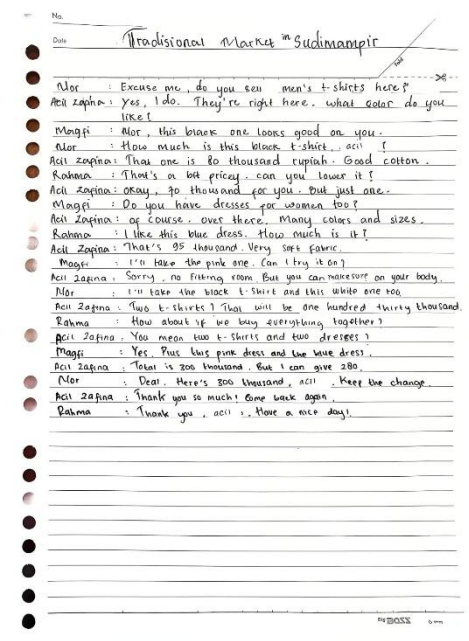 No.
Date
Tradisional Market in Sudimampir
fold
Nor : Excuse me, do you sell men's t-shirts here?
Acil Zapha : Yes, I do. They're right here. What color do you
like?
Magfi : Nor, this black one looks good on you.
Nor : How much is this black t-shirt, acil ?
Acil Zafina : That one is 80 thousand rupiah. Good cotton.
Rahma : That's a bit pricey. can you lower it?
Acil Zafina : Okay, 70 thousand for you. But just one.
Magfi : Do you have dresses for women too?
Acil Zafina : Of course. over there. Many colors and sizes.
Rahma : I like this blue dress. How much is it?
Acil Zafina : That's 95 thousand. Very soft fabric.
Magfi : I'll take the pink one. Can I try it on?
Acil Zafina : Sorry, no fitting room But you can makesure on your body.
Nor : I'll take the black t-shirt and this white one too.
Acil Zafina : Two t-shirts? That will be one hundred thirty thousand.
Rahma : How about if we buy everything together?
Acil Zafina : You mean two t-shirts and two dresses?
Magfi : Yes. Plus this pink dress and the blue dress.
Acil Zafina : Total is 300 thousand. But I can give 280.
Nor : Deal. Here's 300 thousand, acil. Keep the change.
Acil Zafina : Thank you so much! Come back again.
Rahma : Thank you, acil . Have a nice day!
BIG BOSS 6 mm